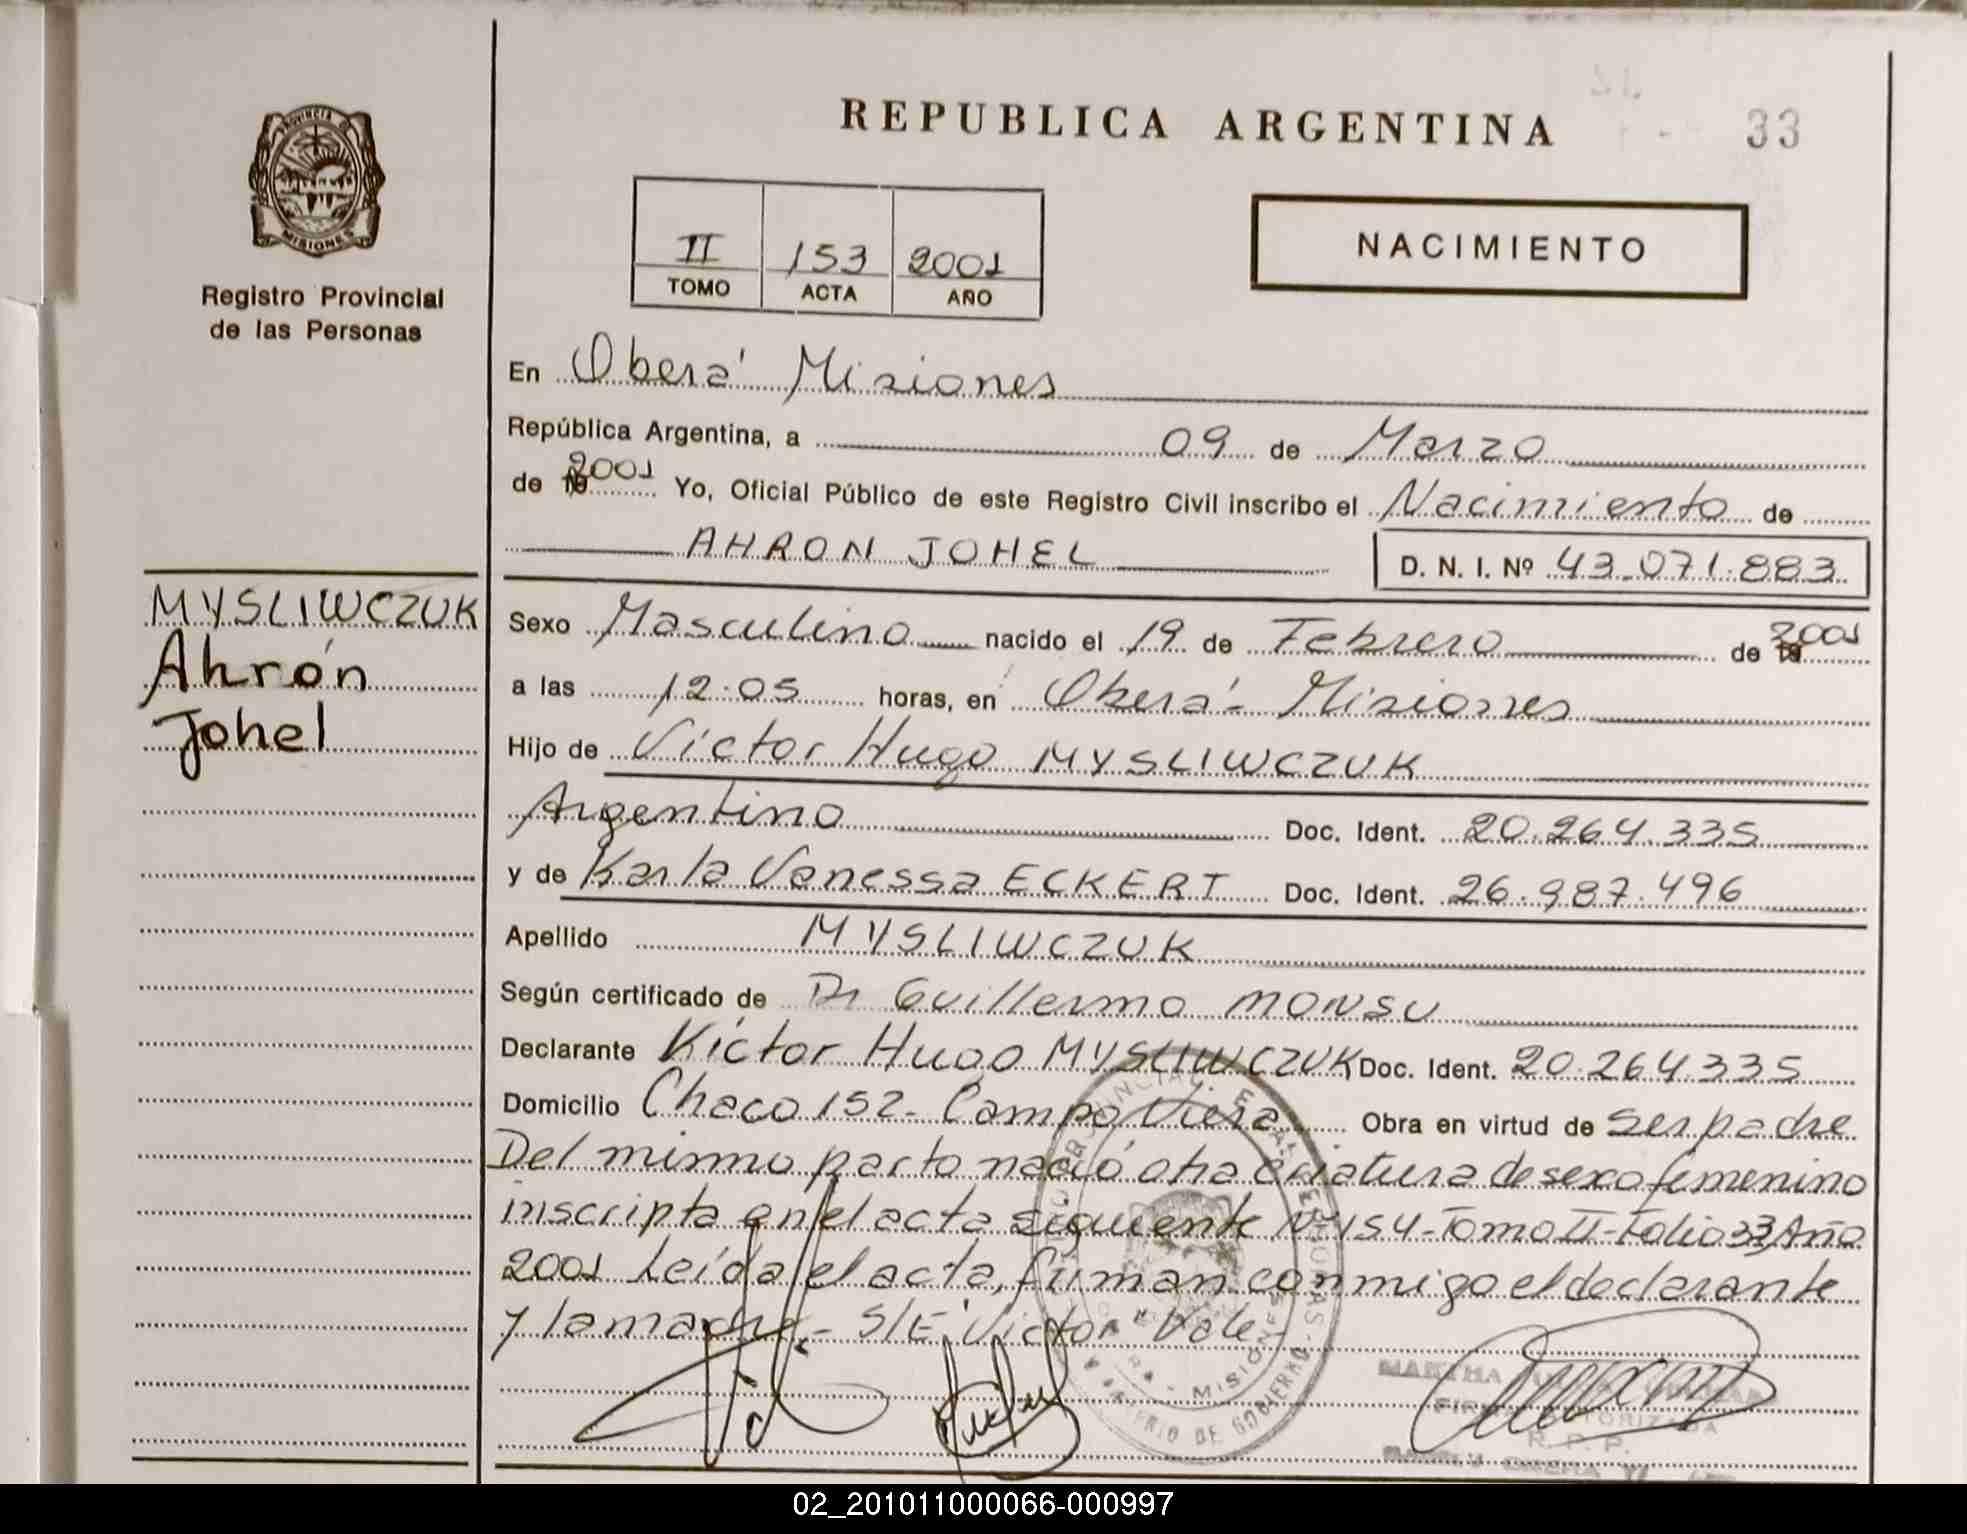 REPUBLICA ARGENTINA
33
PROVINCIA DE
MISIONES
Registro Provincial
de las Personas
II 153 2001
TOMO ACTA AÑO
NACIMIENTO
En Oberá Misiones
República Argentina, a 09 de Marzo
de 2001 Yo, Oficial Público de este Registro Civil inscribo el Nacimiento de
AHRON JOHEL
D. N. I. Nº 43.071.883
MYSLIWCZUK
Ahrón
Johel
Sexo Masculino nacido el 19 de Febrero de 2001
a las 12:05 horas, en Oberá - Misiones
Hijo de Víctor Hugo MYSLIWCZUK
Argentino Doc. Ident. 20.264.335
y de Karla Vanessa ECKERT Doc. Ident. 26.987.496
Apellido MYSLIWCZUK
Según certificado de Dr Guillermo MONSU
Declarante Víctor Hugo MYSLIWCZUK Doc. Ident. 20.264.335
Domicilio Chaco 152 - Campo Viera Obra en virtud de ser padre
Del mismo parto nació otra criatura de sexo femenino
inscripta en el acta siguiente Nº 154 - Tomo II - Folio 33 Año
2001 Leída el acta, firman conmigo el declarante
y la madre.- S/E: "Víctor" Vale
MARTHA
FIRMA AUTORIZADA
R. P. P.
MISIONES
MINISTERIO DE GOBIERNO
02_201011000066-000997